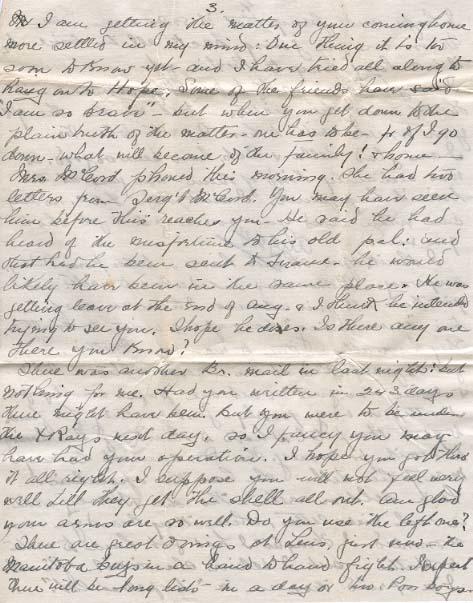 3.
I am getting the matter of your coming home
more settled in my mind: One thing it is too
soon to know yet and I have tried all along to
hang on to Hope, Some of the friends have said
I am so brave" - but when you get down to the
plain truth of the matter - one has to be - for if I go
down - what will become of the family! & home -
Mrs. McCord phoned this morning. She had two
letters from Serg't McCord. You may have seen
him before this reaches you - He said he had
heard of the misfortune to his old pal: and
that had he been sent to France. he would
likely have been in the same place. He was
getting leave at the end of Aug. & I think he intends
trying to see you. I hope he does. Is there any one
there you know?
There was another Br. mail in last night: but
nothing for me. Had you written in 2 or 3 days
there might have been. But you were to be under
the X Rays next day, so I fancy you may
have had your operation. I hope you got thro
it all right. I suppose you will not feel very
well till they get the shell all out. Am glad
your arms are so well. Do you use the left one?
There are great doings at Lens, just now - the
Manitoba boys in a hand to hand fight. I expect
there will be long lists - in a day or two. Poor boys